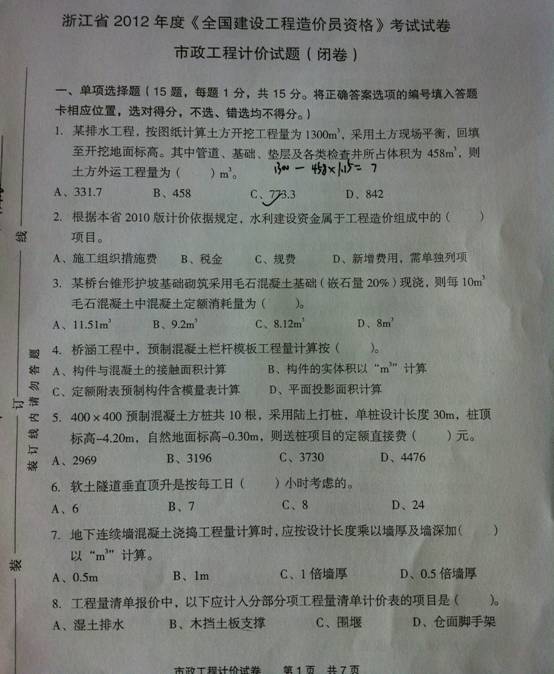 浙江省 2012 年度《全国建设工程造价员资格》考试试卷
市政工程计价试题（闭卷）
一、单项选择题（15 题，每题 1 分，共 15 分。将正确答案选项的编号填入答题
卡相应位置，选对得分，不选、错选均不得分。）
1. 某排水工程，按图纸计算土方开挖工程量为 1300m³，采用土方现场平衡，回填
至开挖地面标高。其中管道、基础、垫层及各类检查井所占体积为 458m³，则
土方外运工程量为（ ）m³。
1300 - 458×1.15 = 7
A、331.7 B、458 C、773.3 D、842
2. 根据本省 2010 版计价依据规定，水利建设资金属于工程造价组成中的（ ）
项目。
A、施工组织措施费 B、税金 C、规费 D、新增费用，需单独列项
3. 某桥台锥形护坡基础砌筑采用毛石混凝土基础（嵌石量 20%）现浇，则每 10m³
毛石混凝土中混凝土定额消耗量为（ ）。
A、11.51m³ B、9.2m³ C、8.12m³ D、8m³
4. 桥涵工程中，预制混凝土栏杆模板工程量计算按（ ）。
A、构件与混凝土的接触面积计算 B、构件的实体积以“m³”计算
C、定额附表预制构件含模量表计算 D、平面投影面积计算
5. 400×400 预制混凝土方桩共 10 根，采用陆上打桩，单桩设计长度 30m，桩顶
标高-4.20m，自然地面标高-0.30m，则送桩项目的定额直接费（ ）元。
A、2969 B、3196 C、3730 D、4476
6. 软土隧道垂直顶升是按每工日（ ）小时考虑的。
A、6 B、7 C、8 D、24
7. 地下连续墙混凝土浇捣工程量计算时，应按设计长度乘以墙厚及墙深加（ ）
以“m³”计算。
A、0.5m B、1m C、1 倍墙厚 D、0.5 倍墙厚
8. 工程量清单报价中，以下应计入分部分项工程量清单计价表的项目是（ ）。
A、湿土排水 B、木挡土板支撑 C、围堰 D、仓面脚手架
市政工程计价试卷 第 1 页 共 7 页
装订线内请勿答题
线
订
装